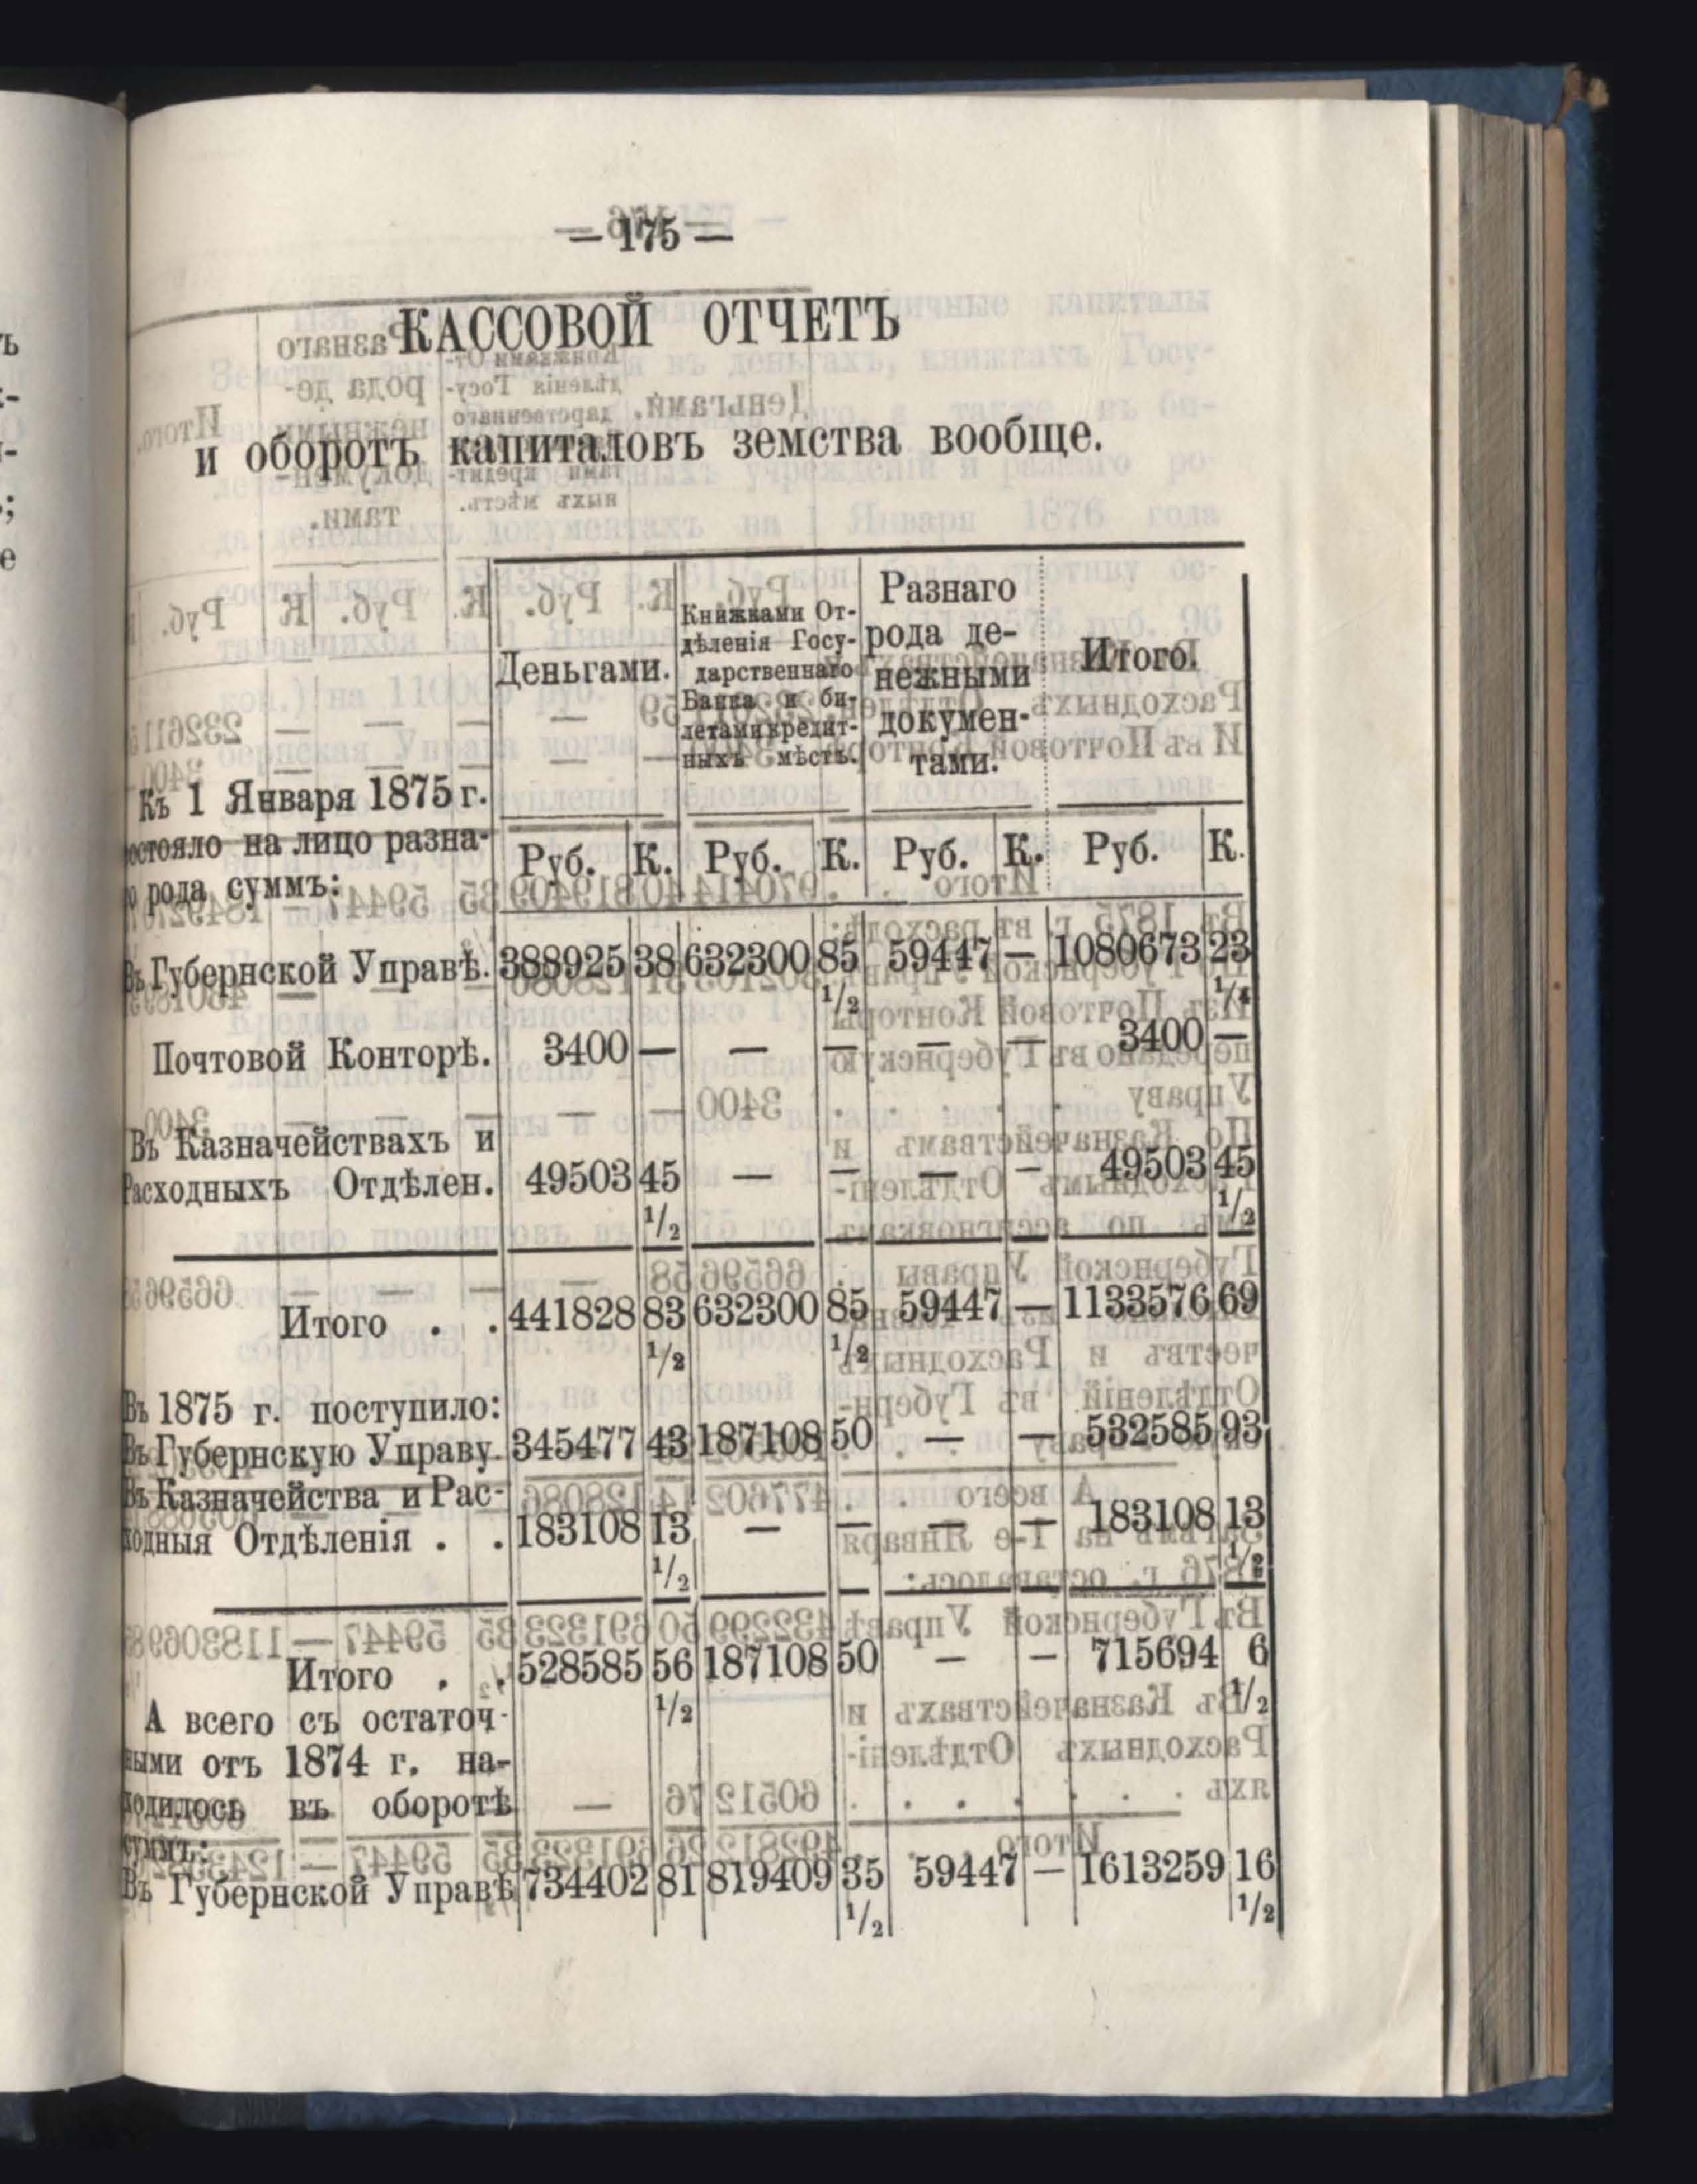 — 175 —
КАССОВОЙ ОТЧЕТЪ
и оборотъ капиталовъ земства вообще.
Деньгами.
Книжками От-
дѣленія Госу-
дарственнаго
Банка и би-
летами кредит-
ныхъ мѣстъ.
Разнаго
рода де-
нежными
докумен-
тами.
Итого.
Къ 1 Января 1875 г.
состояло на лицо разна-
го рода суммъ:
Руб. К. Руб. К. Руб. К. Руб. К.
Въ Губернской Управѣ. 388925 38 632300 85 1/2 59447 — 1080673 23 1/4
Почтовой Конторѣ. 3400 — — — — — 3400 —
Въ Казначействахъ и
Расходныхъ Отдѣлен. 49503 45 1/2 — — — — 49503 45 1/2
Итого . . 441828 83 1/2 632300 85 1/2 59447 — 1133576 69
Въ 1875 г. поступило:
Въ Губернскую Управу 345477 43 187108 50 — — 532585 93
Въ Казначейства и Рас-
ходныя Отдѣленія . . 183108 13 1/2 — — — — 183108 13 1/2
Итого . . 528585 56 1/2 187108 50 — — 715694 6 1/2
А всего съ остаточ-
ными отъ 1874 г. на-
ходилось въ оборотѣ
суммъ:
Въ Губернской Управѣ 734402 81 819409 35 1/2 59447 — 1613259 16 1/2